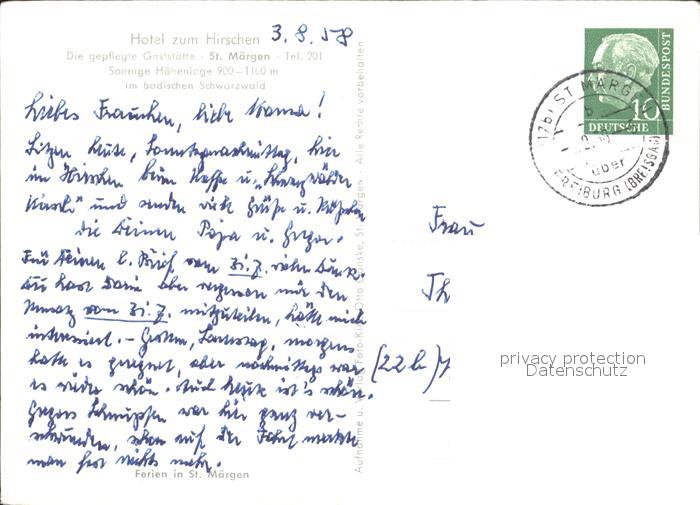 Hotel zum Hirschen 3.8.58
Die gepflegte Gaststätte · St. Märgen · Tel. 201
Sonnige Höhenlage 900–1100 m
im badischen Schwarzwald
Liebes Frauchen, liebe Mama!
Sitzen heute, Sonntagnachmittag, hier
im Hirschen beim Kaffee u. „Schwarzwälder
Kirsch" und senden viele Grüße u. Küßchen
die Deinen Papa u. Gregor.
Für Deinen l. Brief vom 31.7. vielen Dank.
Du hast darin aber vergessen mir den
Umsatz vom 31.7. mitzuteilen, hätte mich
interessiert. – Gestern, Samstag, morgens
hatte es geregnet, aber nachmittags war
es wieder schön. Auch heute ist's schön.
Gregors Schnupfen war hier ganz ver-
schwunden, schon auf der Fahrt merkte
man fast nichts mehr.
Ferien in St. Märgen
Alle Rechte vorbehalten
St. Märgen
DEUTSCHE BUNDESPOST
10
(17b) ST MÄRGEN
über
FREIBURG (BREISGAU)
Frau
Th
(22b)
privacy protection
Datenschutz